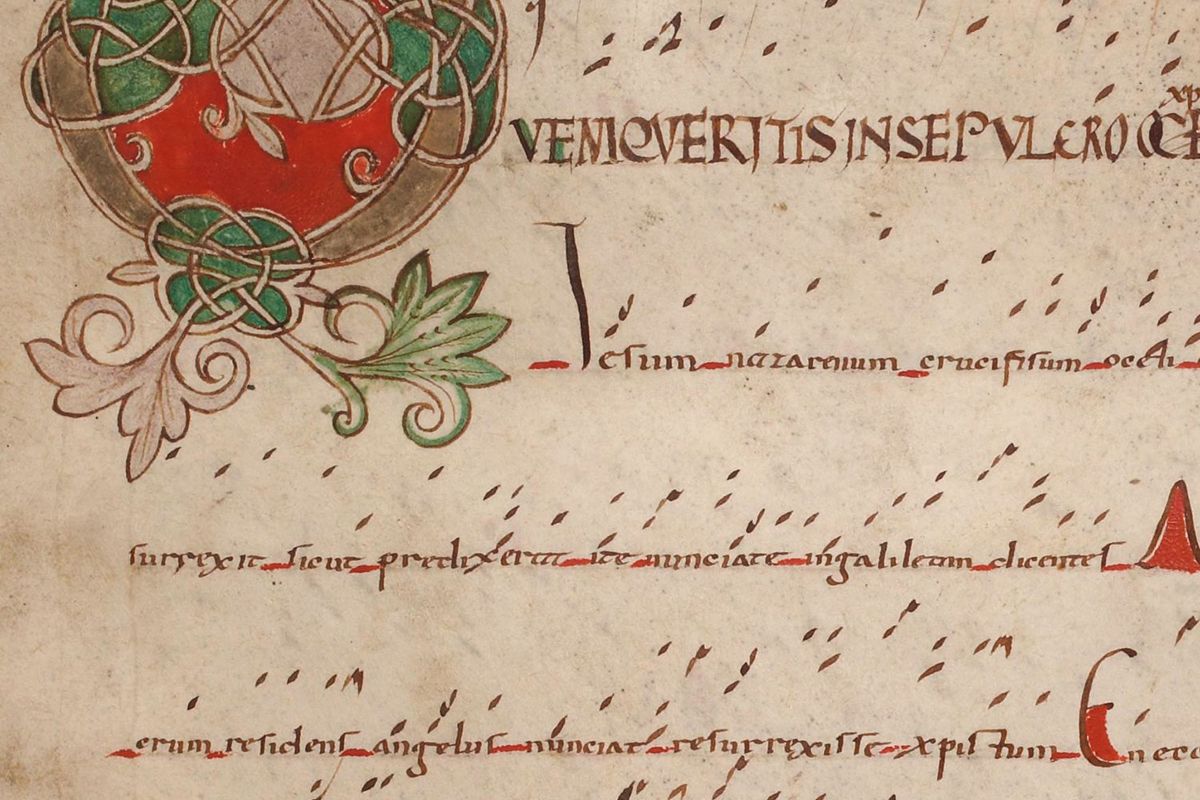 QVEM QVERITIS IN SEPVLCRO
Iesum nazarenum crucifixum o
surrexit sicut predixerat ite nunciate in galileam dicentes A
erum residens angelus nunciat resurrexisse xpistum En ecc